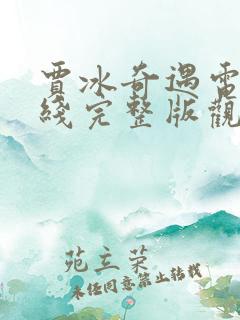 賈冰奇遇電
綫完整版觀
苑立荣
未经同意禁止转载